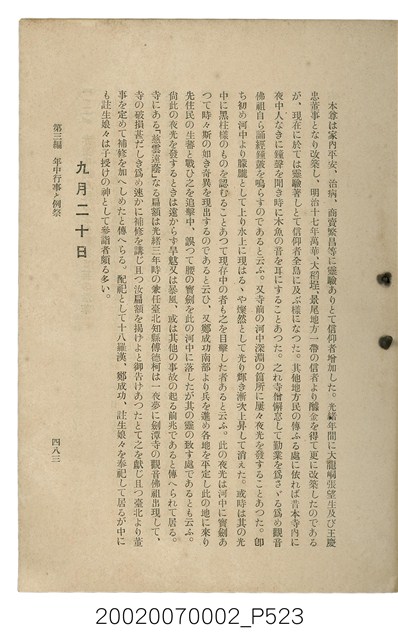 本尊は家内平安、治病、商賣繁昌等に靈驗ありとて信仰者增加した。光緒年間に大龍峒張望生及び王慶
忠董事となり改築し、明治十七年萬華、大稻埕、景尾地方一帶の信者より醵金を得て更に改築したのである
が、現在に於ては靈驗著しとて信仰者全島に及ぶ樣になつた。其他地方民の傳ふる處に依れば昔本寺内に
夜中人なきに鐘聲を聞き時に木魚の音を耳にすることあつた。之れ寺僧懈怠して勤業を爲さゞる爲め觀音
佛祖自ら誦經鐘鼓を鳴らすのであると云ふ。又寺前の河中深淵の箇所に屢々夜光を發することあつた。卽
ち初め河中より朦朧として上り水上に現はるゝや燦然として光り輝き漸次上昇して消えた。或時は其の光
中に黑柱樣のものを認むることあつて現存中の者も之を目擊した者あると云ふ。此の夜光は河中に寶劍あ
つて時々斯の如き奇異を現出するのであると云ひ、又鄭成功南部より兵を進め各地を平定し此の地に來り
先住民の生蕃と戰ひ之を追擊中、誤つて腰の寶劍を此の河中に落したが其の靈の致す處であるとも云ふ。
尙此の夜光を發するときは遠からず旱魃又は暴風、或は其他の事故の起る前兆であると傳へられて居る。
寺にある「慈雲遠蔭」なる扁額は光緒三年時の兼任臺北知縣傅德柯は一夜夢に劍潭寺の觀音佛祖出現して、
寺の破損甚だしき爲め速かに補修を講じ且つ汝扁額を揭けよと御吿けあつたとて之を獻じ且つ臺北より董
事を定めて補修を加へしめたと傳へらる。配祀として十八羅漢、鄭成功、註生娘々を奉祀して居るが中に
も註生娘々は子授けの神として參詣者頗る多い。
九月二十日
第三編 年中行事と例祭
四八三
20020070002_P523